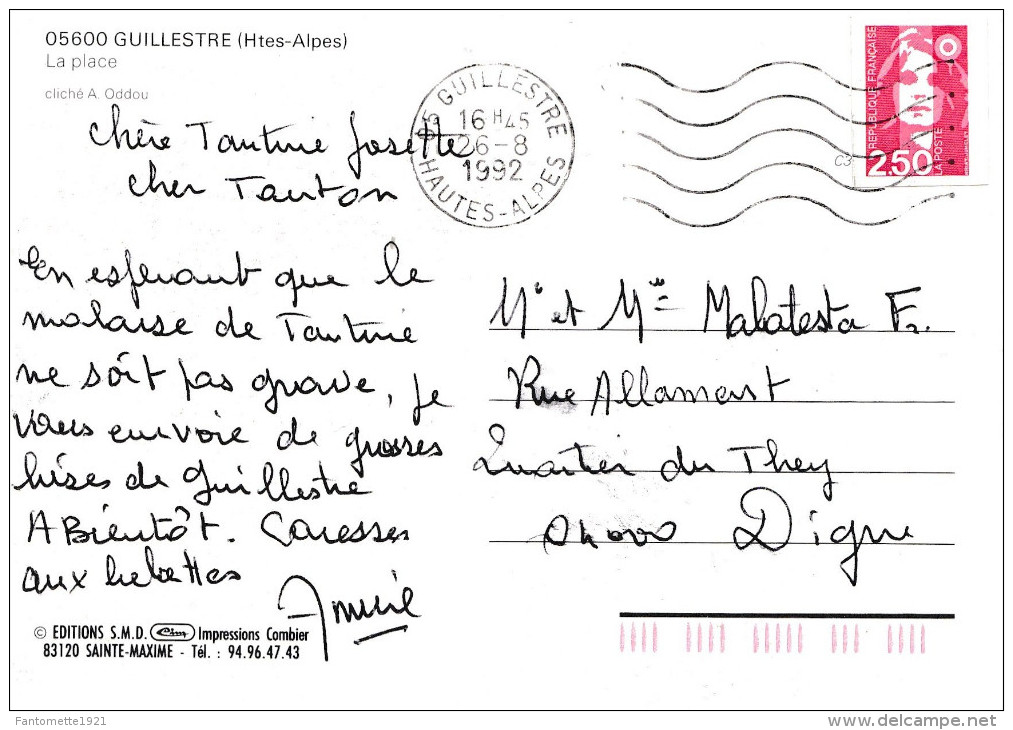 05600 GUILLESTRE (Htes-Alpes)
La place
cliché A. Oddou
Chère Tantine Josette
cher Tonton
En espérant que le
malaise de Tantine
ne soit pas grave, je
vous envoie de grosses
bises de Guillestre
A Bientôt. Caresses
aux
© EDITIONS S.M.D. Cim Impressions Combier
83120 SAINTE-MAXIME - Tél. : 94.96.47.43
05 GUILLESTRE
16 H45
26-8
1992
HAUTES-ALPES
RÉPUBLIQUE FRANÇAISE
2,50
LA POSTE
C3
Mr et Mme Malatesta F.
Rue Allamant
Quartier du They
04000 Digne
Fantomette1921
delcampe.net